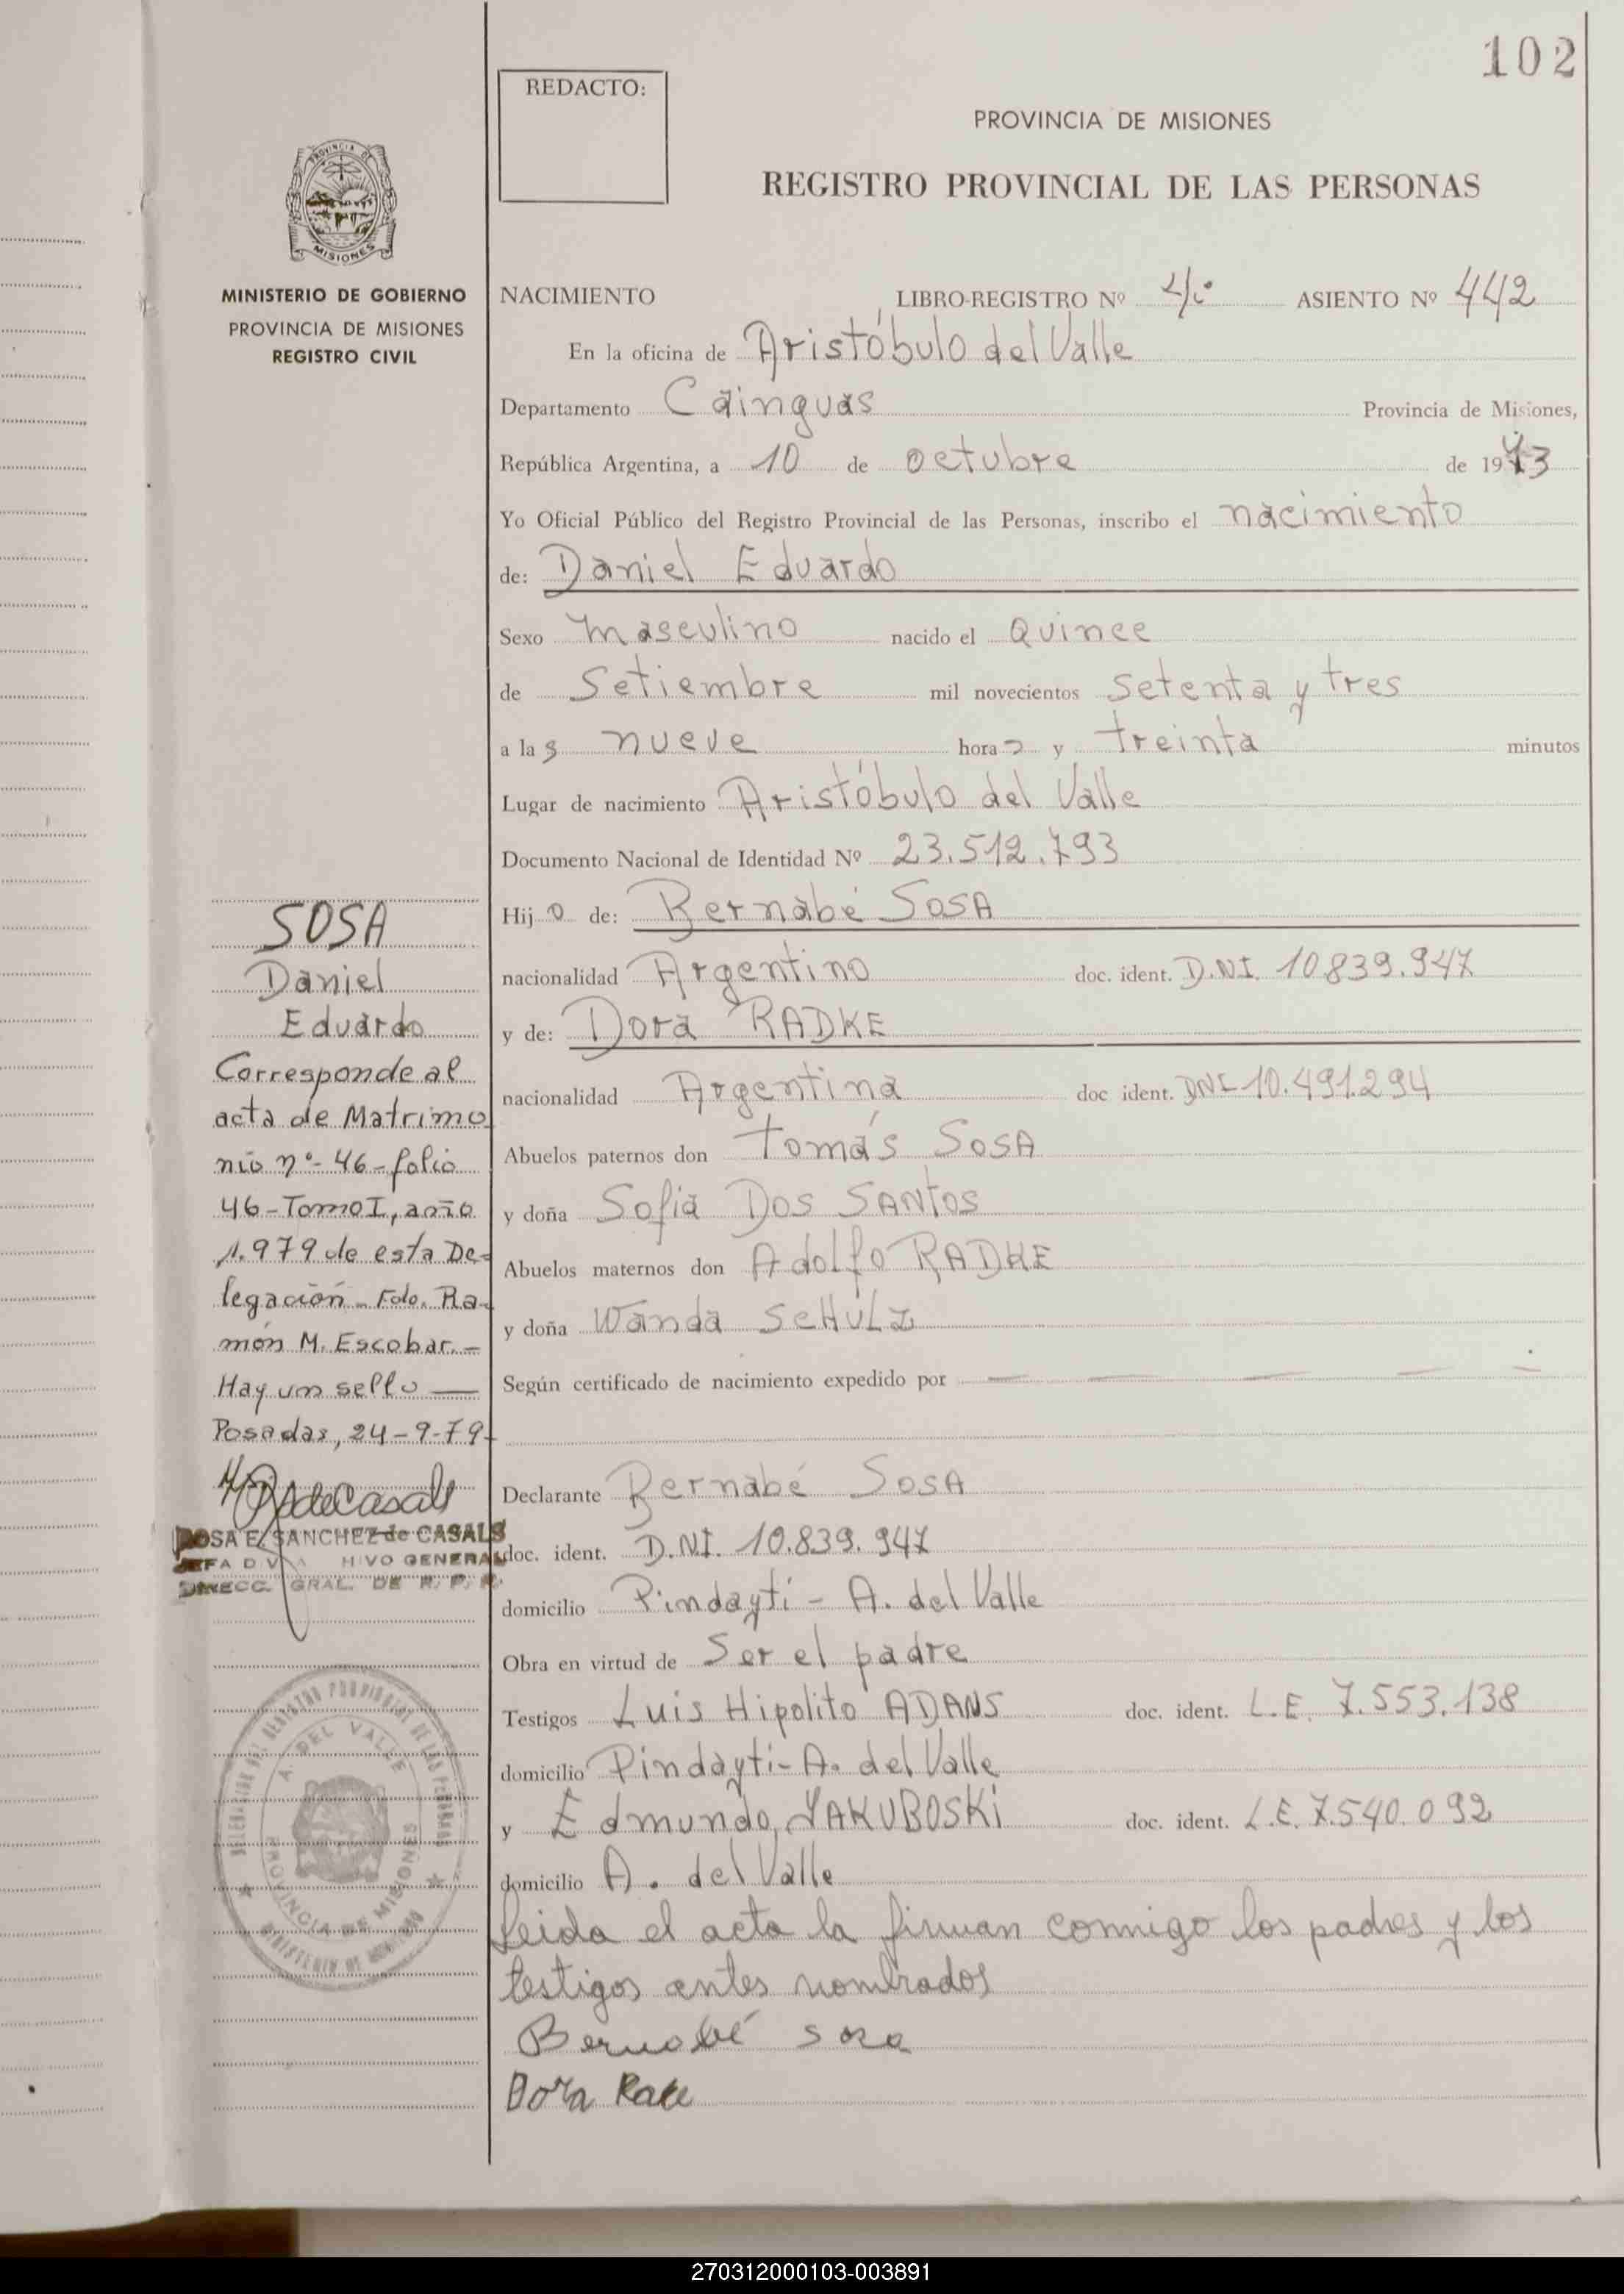 102
REDACTO:
PROVINCIA DE MISIONES
REGISTRO PROVINCIAL DE LAS PERSONAS
PROVINCIA DE
MISIONES
MINISTERIO DE GOBIERNO
PROVINCIA DE MISIONES
REGISTRO CIVIL
NACIMIENTO LIBRO-REGISTRO Nº 4º ASIENTO Nº 442
En la oficina de Aristóbulo del Valle
Departamento Cainguas Provincia de Misiones,
República Argentina, a 10 de octubre de 1973
Yo Oficial Público del Registro Provincial de las Personas, inscribo el nacimiento
de: Daniel Eduardo
Sexo masculino nacido el Quince
de Setiembre mil novecientos setenta y tres
a las nueve horas y treinta minutos
Lugar de nacimiento Aristóbulo del Valle
Documento Nacional de Identidad Nº 23.512.793
Hijo de: Bernabé SosA
nacionalidad Argentino doc. ident. D.NI. 10.839.947
y de: Dora RADKE
nacionalidad Argentina doc ident. DNI 10.491.294
Abuelos paternos don Tomás SosA
y doña Sofia Dos SANtos
Abuelos maternos don Adolfo RADKE
y doña Wanda ScHULz
Según certificado de nacimiento expedido por
Declarante Bernabé SosA
doc. ident. D.NI. 10.839.947
domicilio Pindayti - A. del Valle
Obra en virtud de Ser el padre
Testigos Luis Hipolito ADANS doc. ident. L.E. 7.553.138
domicilio Pindayti - A. del Valle
y Edmundo YAKUBOSKi doc. ident. L.E. 7.540.092
domicilio A. del Valle
Leida el acta la firman conmigo los padres y los
testigos antes nombrados
Bernabé sosa
Dora
SOSA
Daniel
Eduardo
Corresponde al
acta de Matrimo
nio nº- 46 - folio
46 - Tomo I, año
1.979 de esta De-
legación - Fdo. Ra-
món M. Escobar. -
Hay un sello —
Posadas, 24-9-79
ROSA E. SANCHEZ de CASALS
JEFA DIV. ARCHIVO GENERAL
DIRECC. GRAL. DE R. P. P.
DELEGACION DEL REGISTRO PROVINCIAL DE LAS PERSONAS
A. DEL VALLE
PROVINCIA DE MISIONES
MINISTERIO DE GOBIERNO
270312000103-003891